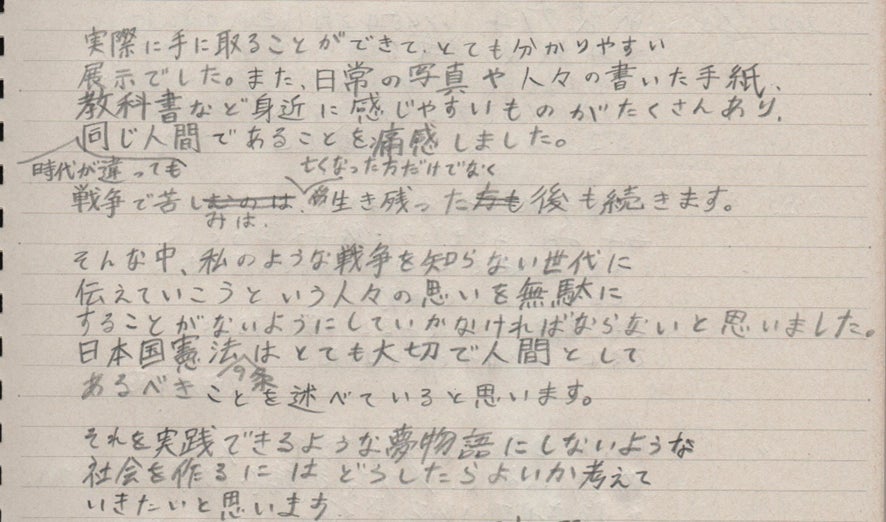 実際に手に取ることができて、とても分かりやすい
展示でした。また、日常の写真や人々の書いた手紙、
教科書など身近に感じやすいものがたくさんあり、
同じ人間であることを痛感しました。
時代が違っても
亡くなった方だけでなく
戦争で苦しむのは、生き残った方も後も続きます。
みは、
そんな中、私のような戦争を知らない世代に
伝えていこうという人々の思いを無駄に
することがないようにしていかなければならないと思いました。
日本国憲法はとても大切で人間として
9条
あるべきことを述べていると思います。
それを実践できるような夢物語にしないような
社会を作るにはどうしたらよいか考えて
いきたいと思います